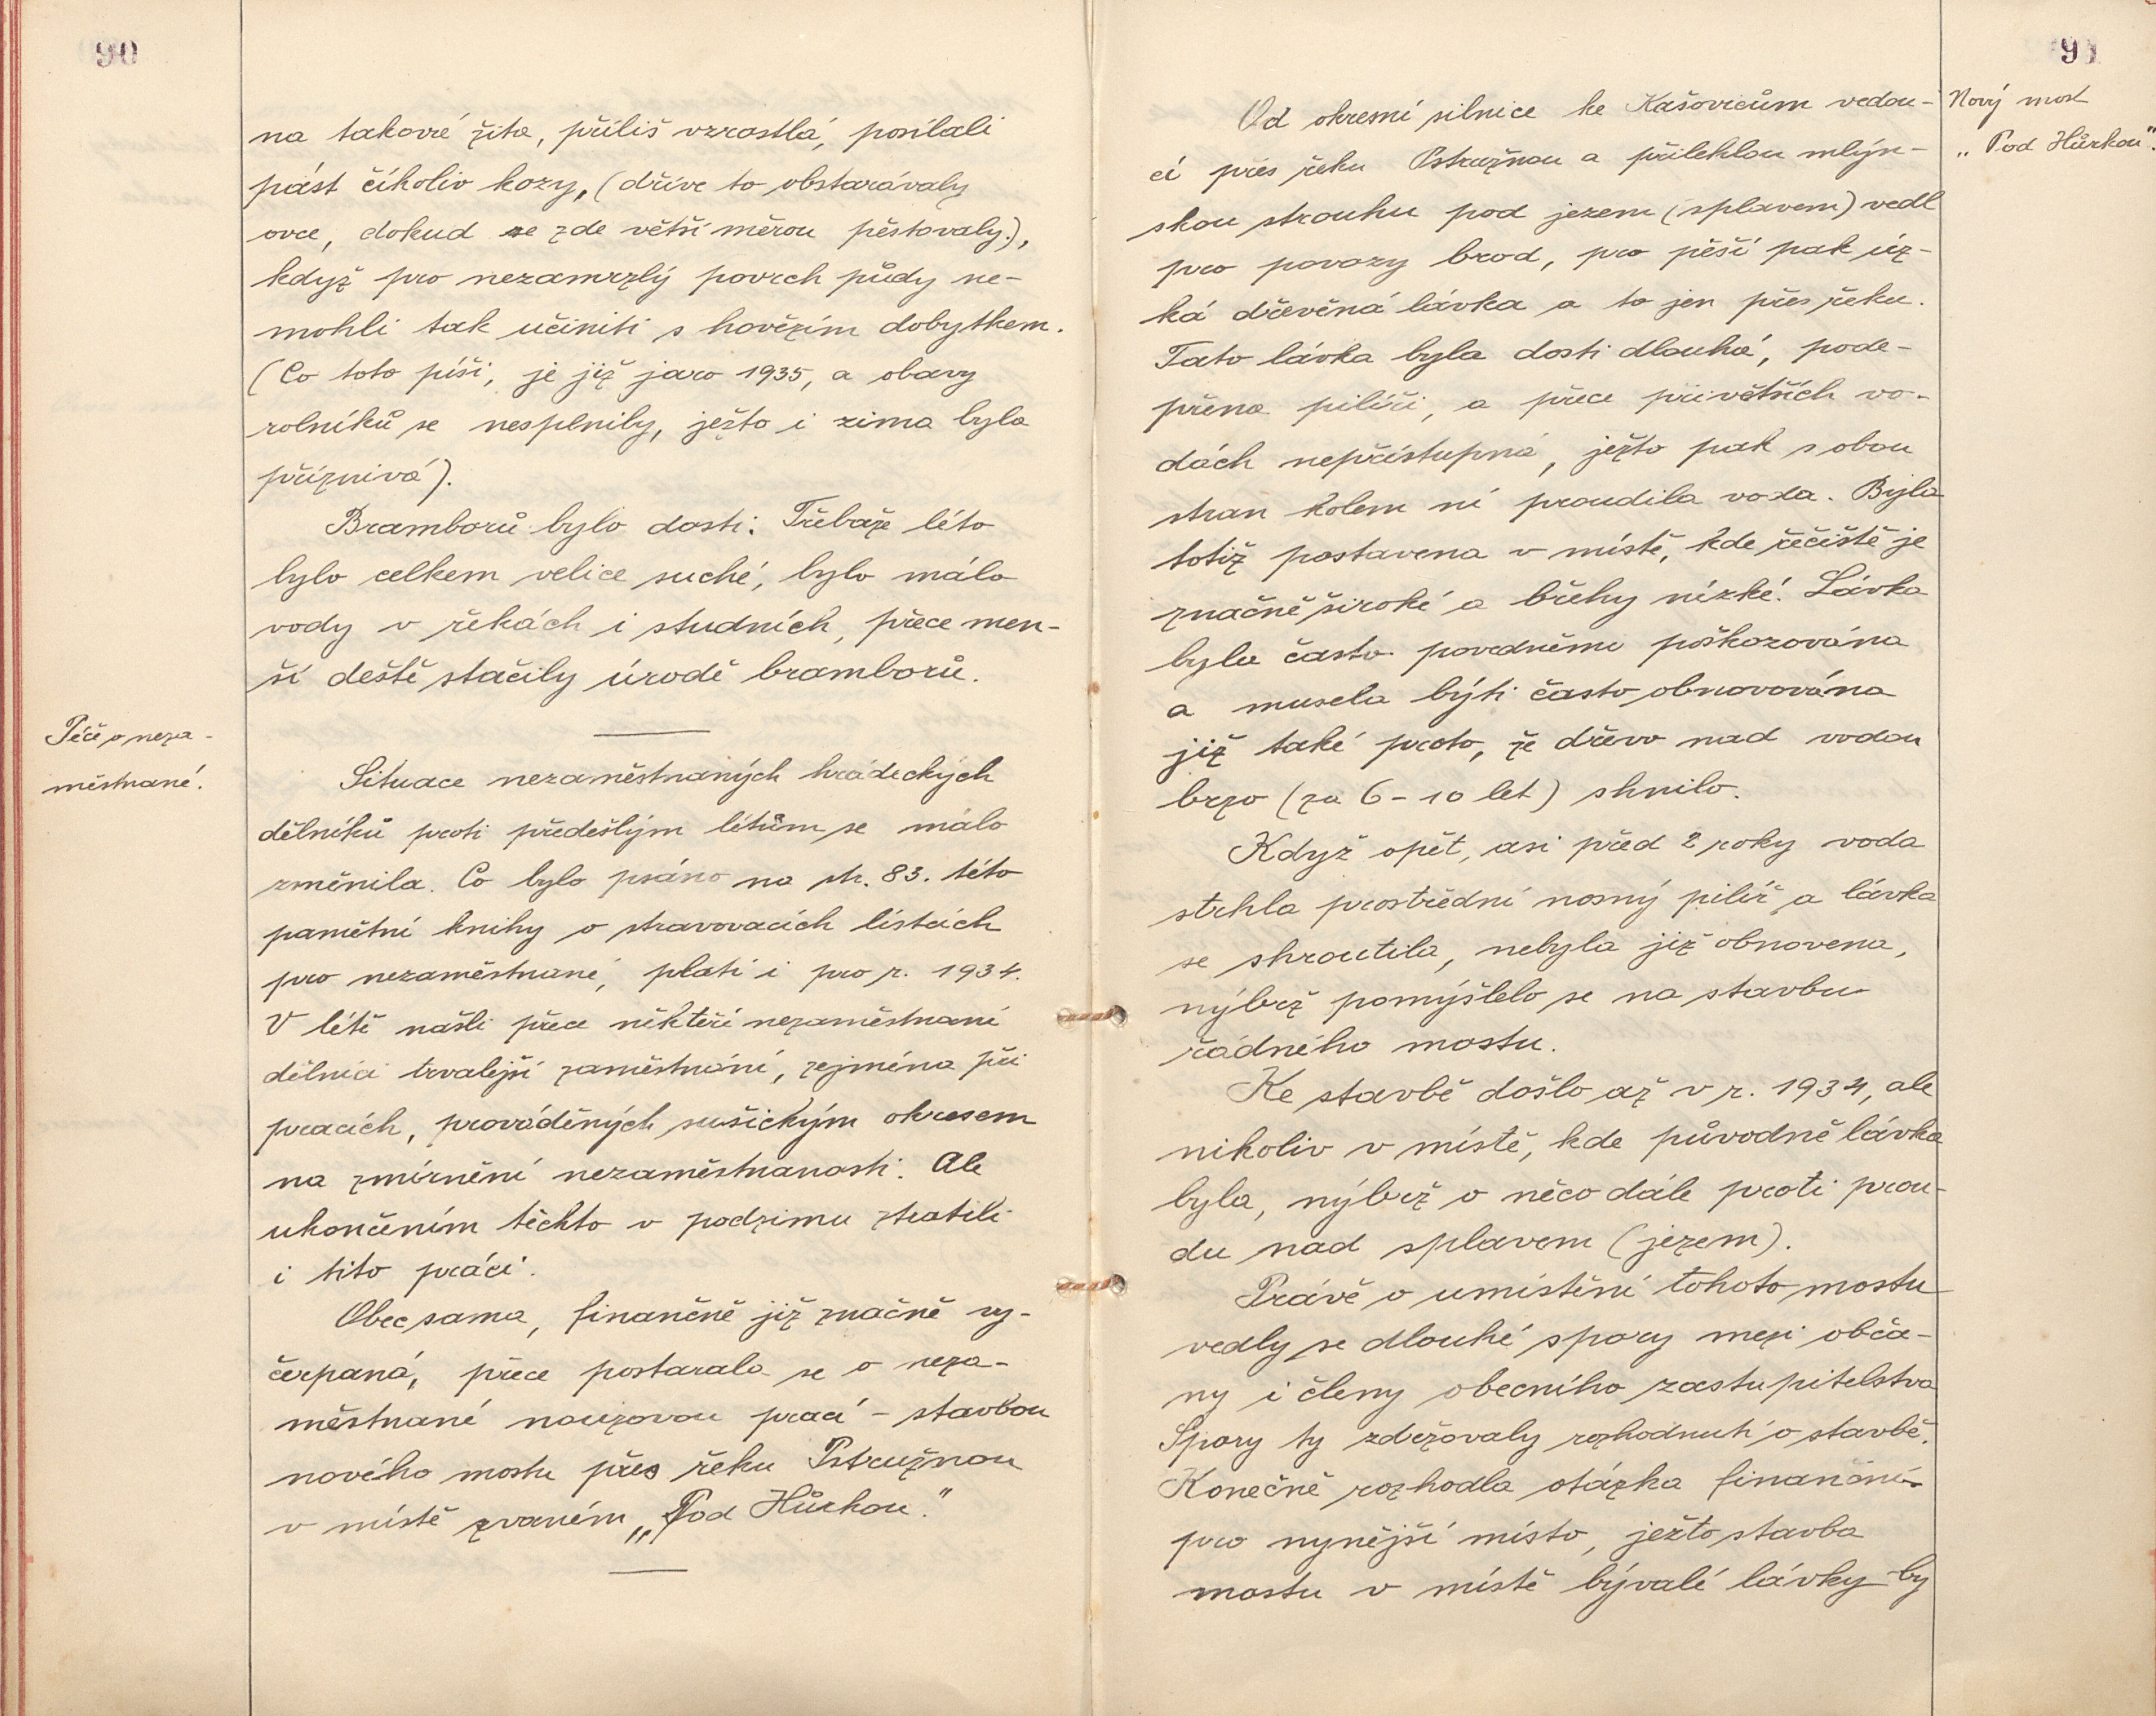 90
na takové žita, příliš vzrostlá, posílali
pást číkoliv kozy, (dříve to obstarávaly
ovce, dokud se zde větší měrou pěstovaly.),
když pro nezamrzlý povrch půdy ne-
mohli tak učiniti s hovězím dobytkem.
(Co toto píši, je již jaro 1935, a obavy
rolníků se nesplnily, ježto i zima byla
příznivá).
Bramborů bylo dosti. Třebaže léto
bylo celkem velice suché, bylo málo
vody v řekách i studních, přece men-
ší deště stačily úrodě bramborů.
Péče o neza-
městnané.
Situace nezaměstnaných hrádeckých
dělníků proti předešlým létům se málo
změnila. Co bylo psáno na str. 83. této
pamětní knihy o stravovacích lístcích
pro nezaměstnané, platí i pro r. 1934.
V létě našli přece někteří nezaměstnaní
dělníci trvalejší zaměstnání, zejména při
pracích, prováděných sušickým okresem
na zmírnění nezaměstnanosti. Ale
ukončením těchto v podzimu ztratili
i tito práci.
Obec sama, finančně již značně vy-
čerpaná, přece postarala se o neza-
městnané nouzovou prací - stavbou
nového mostu přes řeku Pstružnou
v místě zvaném „Pod Hůrkou."
91
Nový most
„Pod Hůrkou".
Od okresní silnice ke Kašovicům vedou-
cí přes řeku Pstružnou a přilehlou mlýn-
skou strouhu pod jezem (splavem) vedl
pro povozy brod, pro pěší pak úz-
ká dřevěná lávka a to jen přes řeku.
Tato lávka byla dosti dlouhá, pode-
přena pilíři, a přece při větších vo-
dách nepřístupná, ježto pak s obou
stran kolem ní proudila voda. Byla
totiž postavena v místě, kde řečiště je
značně široké a břehy nízké. Lávka
byla často povodněmi poškozována
a musela býti často obnovována
již také proto, že dřevo nad vodou
brzo (za 6-10 let) shnilo.
Když opět, asi před 2 roky voda
strhla prostřední nosný pilíř a lávka
se shroutila, nebyla již obnovena,
nýbrž pomýšlelo se na stavbu
řádného mostu.
Ke stavbě došlo až v r. 1934, ale
nikoliv v místě, kde původně lávka
byla, nýbrž o něco dále proti prou-
du nad splavem (jezem).
Právě o umístění tohoto mostu
vedly se dlouhé spory mezi obča-
ny i členy obecního zastupitelstva
Spory ty zdržovaly rozhodnutí o stavbě.
Konečně rozhodla otázka finanční
pro nynější místo, ježto stavba
mostu v místě bývalé lávky by